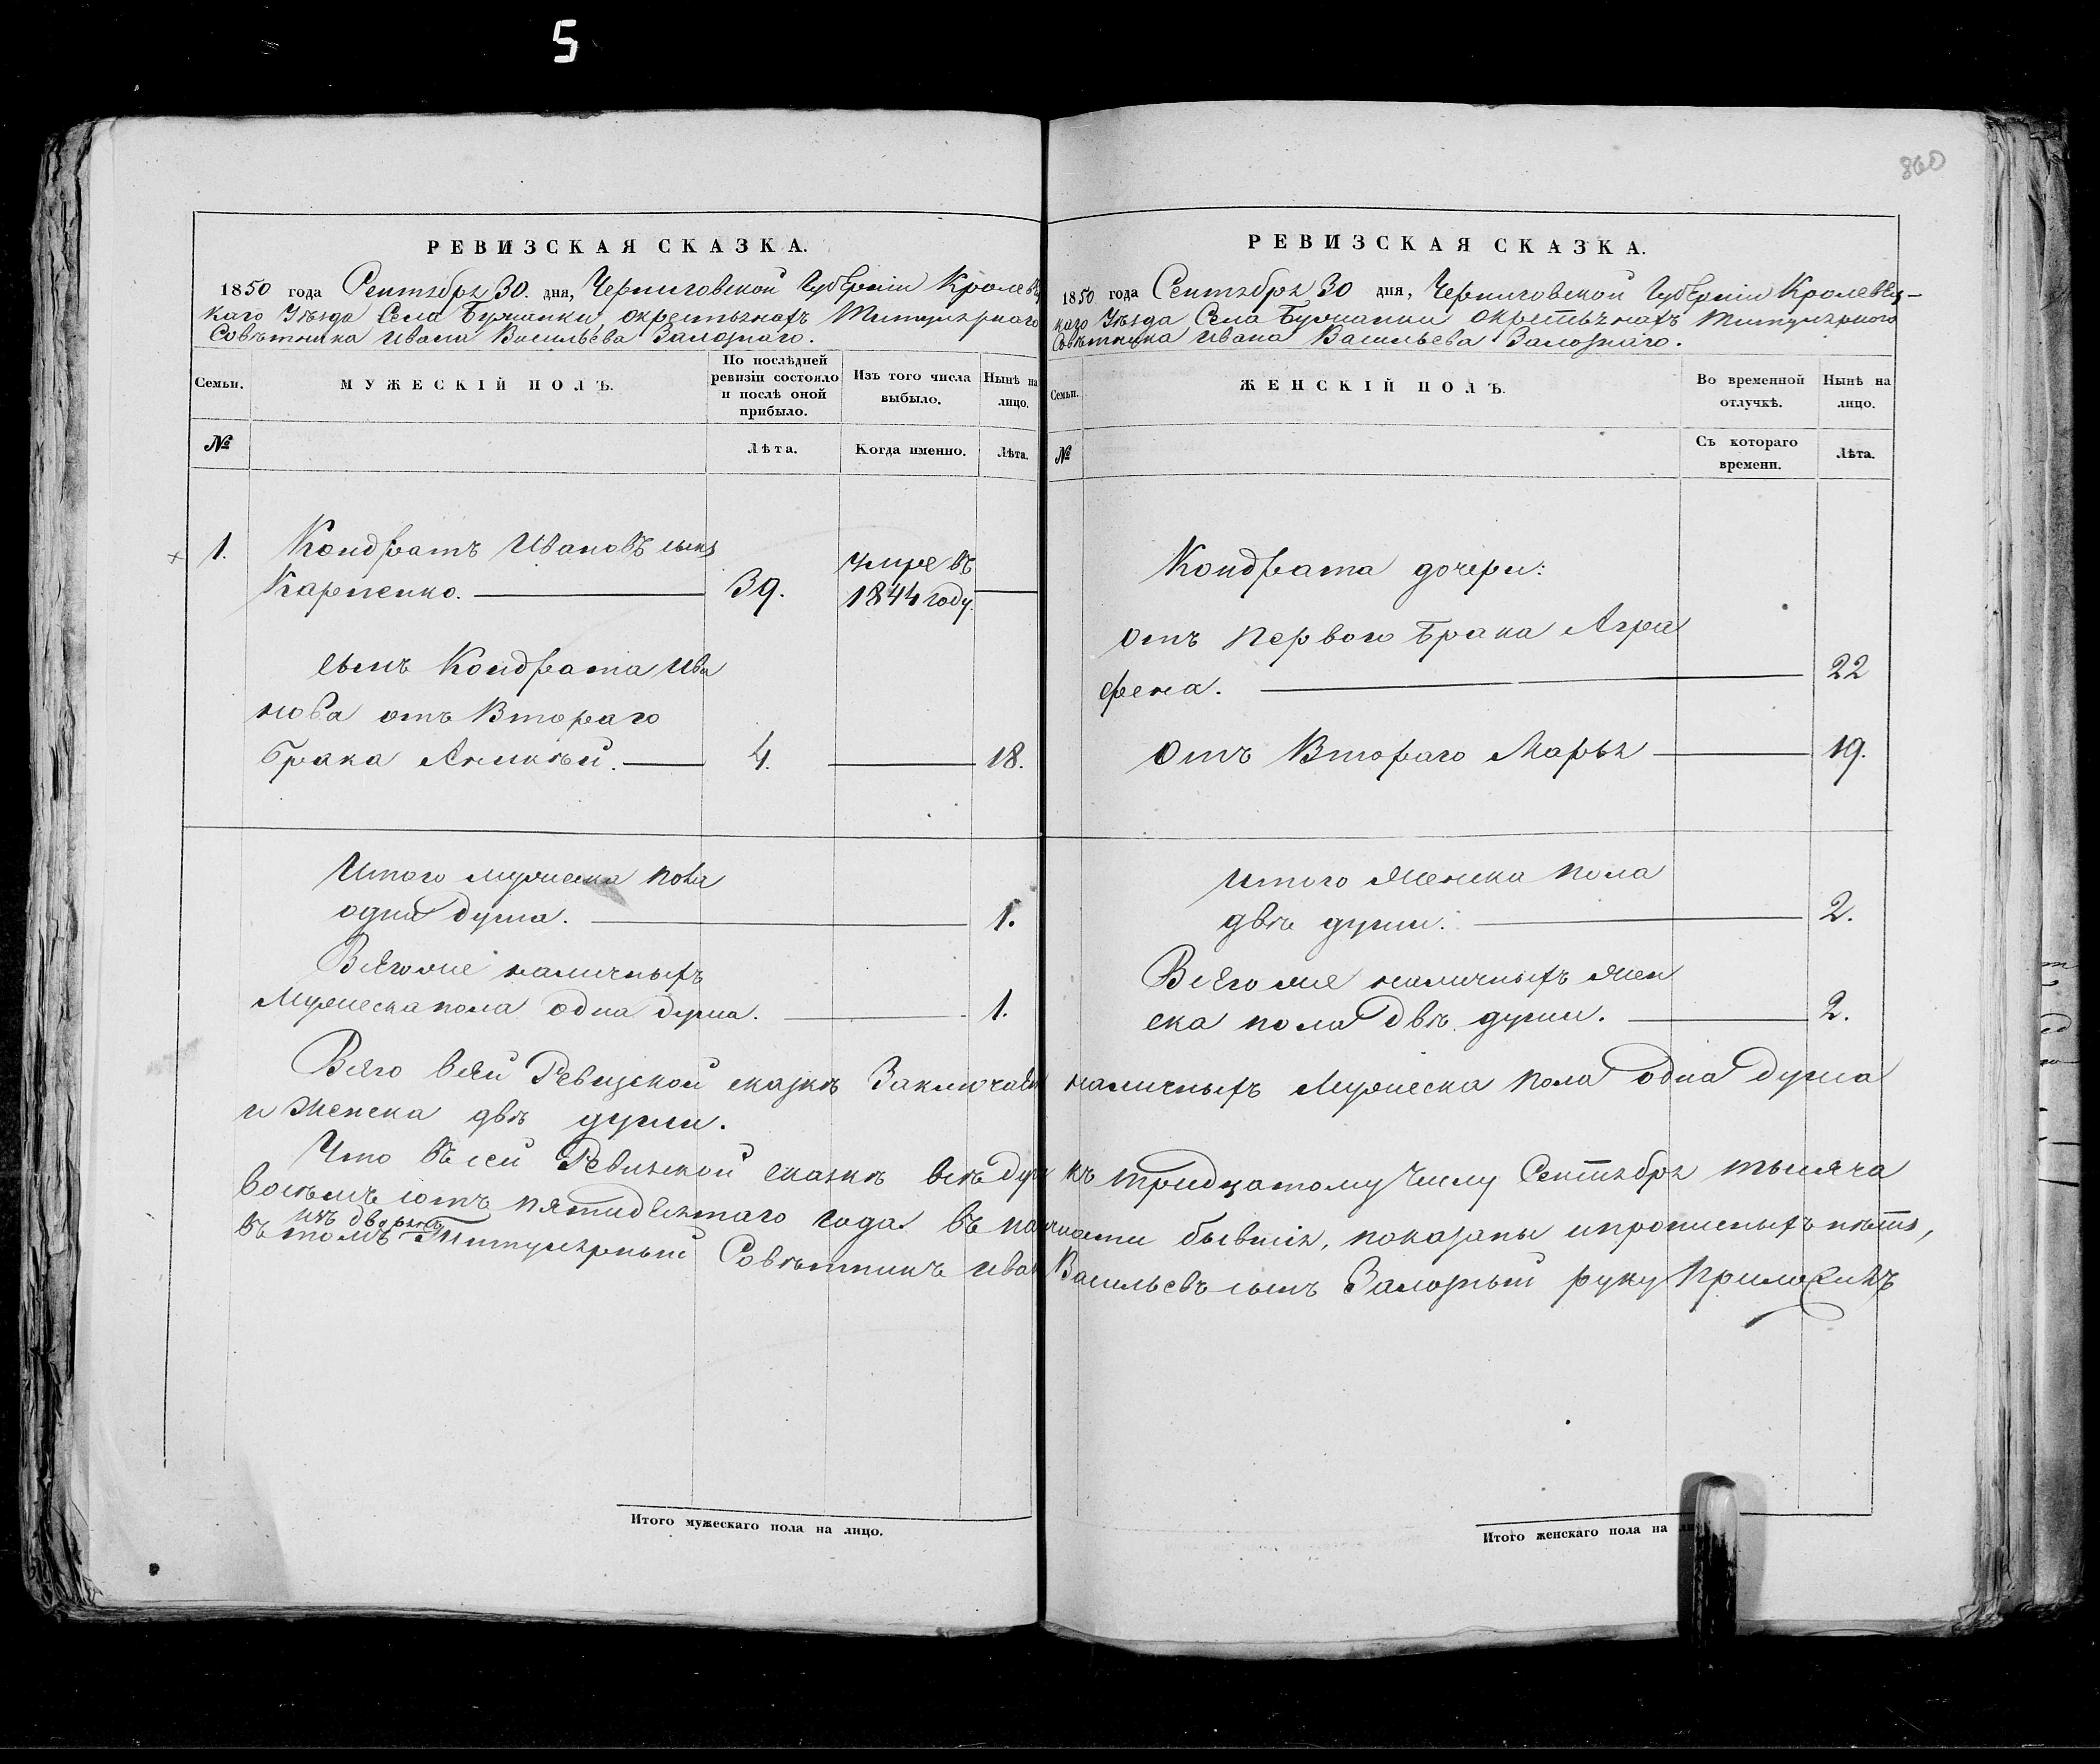 5
860
РЕВИЗСКАЯ СКАЗКА.
1850 года Сентября 30. дня, Черниговской Губерніи Кролевец
каго Уѣзда Села окрестьянахъ Титулярнаго
Совѣтника Ивана Васильева Залознаго.
Семьи.
МУЖЕСКІЙ ПОЛЪ.
По послѣдней
ревизіи состояло
и послѣ оной
прибыло.
Изъ того числа
выбыло.
Нынѣ на
лицо.
№
Лѣта.
Когда именно.
Лѣта.
1. Кондратъ Ивановъ сынъ
Карпенко. 39.
умре въ
1844 году.
сынъ Кондрата Ива
нова отъ Втораго
брака Аникѣй. 4. 18.
Итого мужеска пола
одна душа. 1.
Всегоже наличныхъ
Мужеска пола одна душа. 1.
РЕВИЗСКАЯ СКАЗКА.
1850 года Сентября 30 дня, Черниговской Губерніи Кролевец-
каго Уѣзда Села окрестьянахъ Титулярного
Совѣтника Ивана Васильева Залознаго.
Семьи.
ЖЕНСКІЙ ПОЛЪ.
Во временной
отлучкѣ.
Нынѣ на
лицо.
№
Съ котораго
времени.
Лѣта.
Кондрата дочери:
отъ первого брака Агра
фена. 22
отъ Втораго Марья 19.
Итого Женска пола
двѣ души. 2.
Всегоже наличныхъ Жен
ска пола двѣ души. 2.
Всего всей Ревизской сказкѣ Заключает наличныхъ Мужеска пола одна душа
и Женска двѣ души.
Что въ сей Ревизской сказкѣ всѣ души къ тридцатому Числу Сентября тысяча
восемъ сотъ пятидесятаго года въ наличности бывшія, показаны и прописныхъ нѣтъ,
изъ дворянъ
въ томъ Титулярный Совѣтникъ Иван Васильевъ сынъ Залозный руку приложилъ
Итого мужескаго пола на лицо.
Итого женскаго пола на